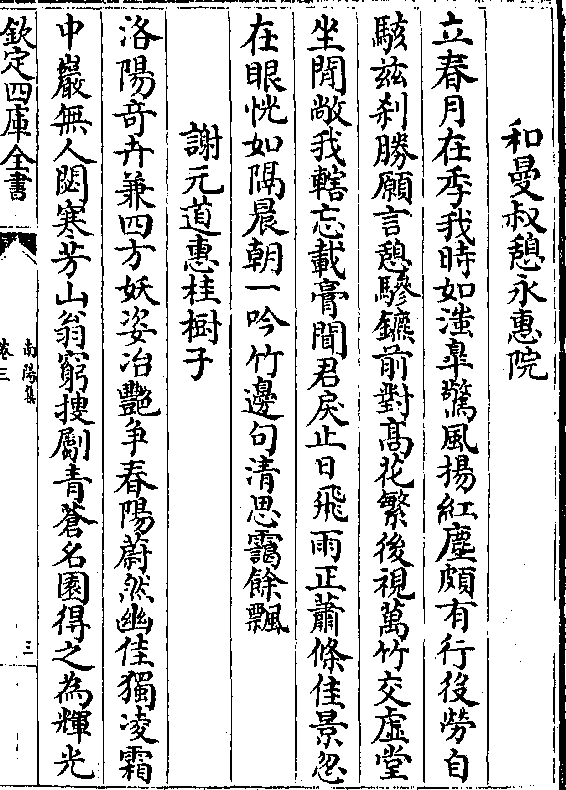 和曼叔憩永惠院
立春月在季我時如滍臯驚風揚紅塵頗有行役勞自
駭兹刹勝願言憩驂鑣前對髙花繁後視萬竹交虛堂
坐閒敞我轄忘載膏聞君戾止日飛雨正蕭條佳景忽
在眼恍如隔晨朝一吟竹邊句清思靄餘飄
謝元道惠桂樹子
洛陽竒卉兼四方妖姿冶艷争春陽蔚然幽佳獨凌霜
中巖無人閟寒芳山翁窮搜劚青蒼名園得之為輝光
欽定四庫全書
南陽集
卷三
三